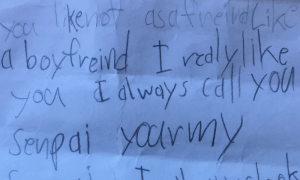 you like not as a freind Like
a boyfreind I realy like
you I always call you
senpai yourmy